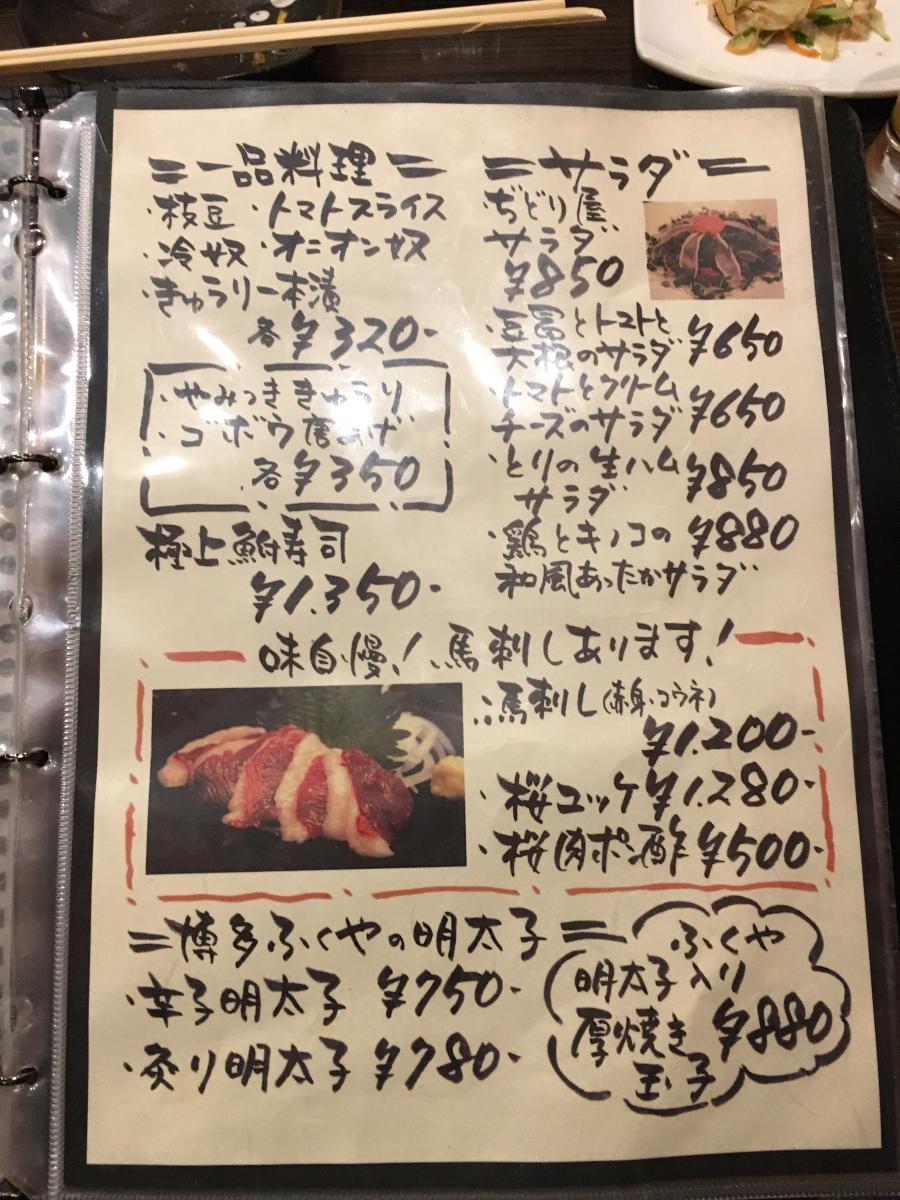 =一品料理=
・枝豆 ・トマトスライス
・冷奴 ・オニオン奴
・きゅうり一本漬
各¥320-
・やみつききゅうり
・ゴボウ唐あげ
各¥350
極上鮒寿司
¥1.350-
=サラダ=
ぢどり屋
サラダ
¥850
・豆冨とトマトと
大根のサラダ ¥650
・トマトとクリーム
チーズのサラダ ¥650
・とりの生ハム
サラダ ¥850
・鶏とキノコの ¥880
和風あったかサラダ
味自慢!馬刺しあります!
・馬刺し(赤身・コウネ)
¥1.200-
・桜ユッケ ¥1.280-
・桜肉ポン酢 ¥500-
=博多ふくやの明太子=
・辛子明太子 ¥750-
・炙り明太子 ¥780-
ふくや
明太子入り
厚焼き ¥880
玉子